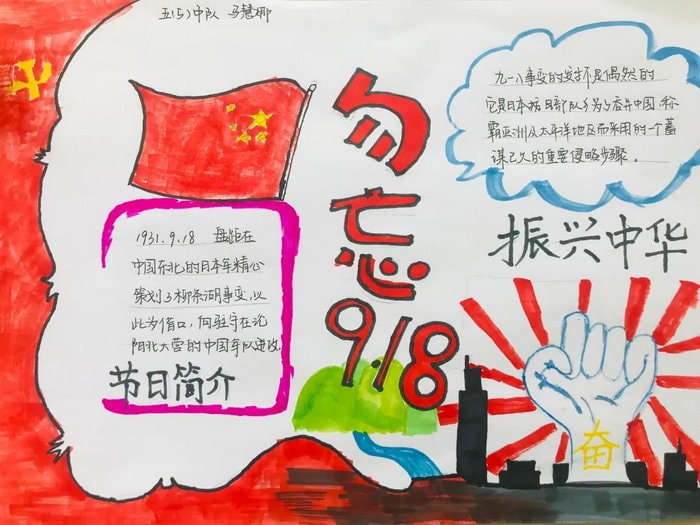 五(5)中队 马慧娜
九一八事变的发生不是偶然的
它是日本 为了吞并中国、称
霸亚洲及太平洋地区而采用的一个蓄
谋已久的重要侵略步骤.
勿忘
9.18
振兴中华
1931.9.18 盘踞在
中国东北的日本军精心
策划了柳条湖事变,以
此为借口,向驻守在沈
阳北大营的中国军队进攻.
节日简介
奋